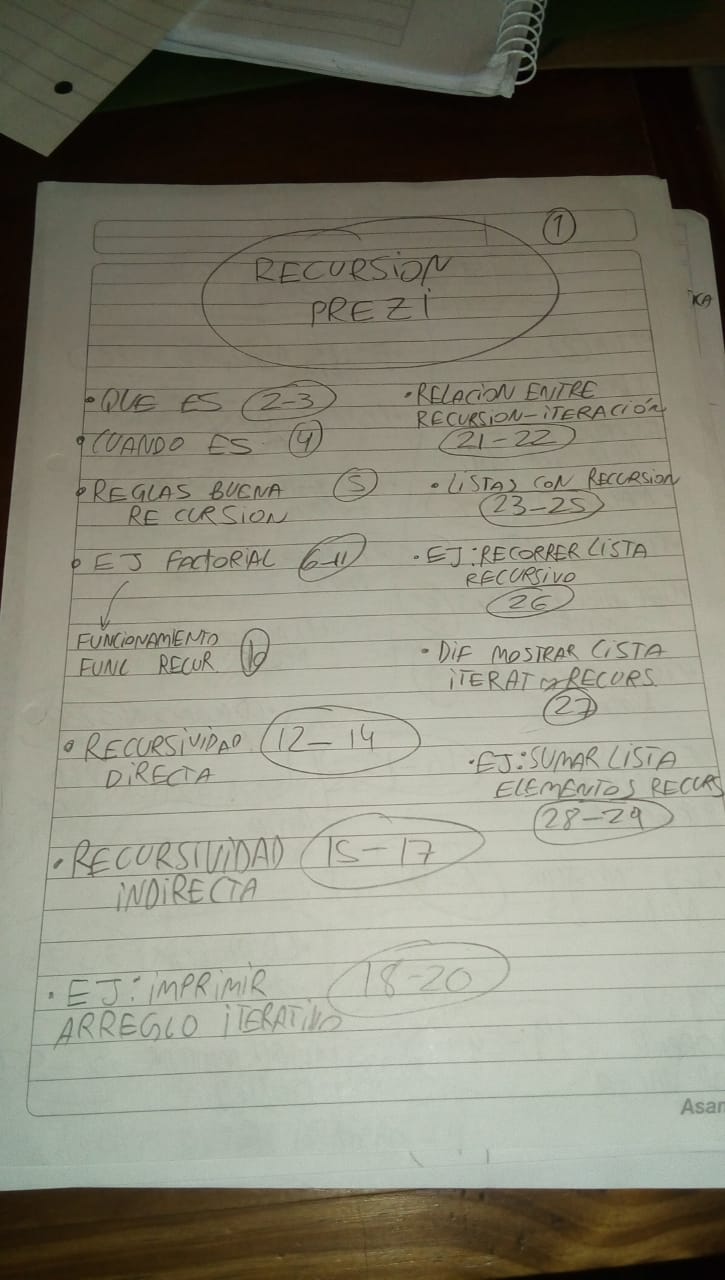 1
RECURSION
PREZI
• QUE ES 2-3
• CUANDO ES 4
• REGLAS BUENA 5
RECURSION
• EJ FACTORIAL 6-11
FUNCIONAMIENTO
FUNC RECUR 10
• RECURSIVIDAD 12-14
DIRECTA
• RECURSIVIDAD 15-17
INDIRECTA
• EJ: IMPRIMIR 18-20
ARREGLO ITERATIVO
• RELACION ENTRE
RECURSION-ITERACIÓN
21-22
• LISTAS CON RECURSION
23-25
• EJ: RECORRER LISTA
RECURSIVO
26
• DIF MOSTRAR LISTA
ITERAT RECURS.
27
• EJ: SUMAR LISTA
ELEMENTOS RECURS
28-29
Asar
KA